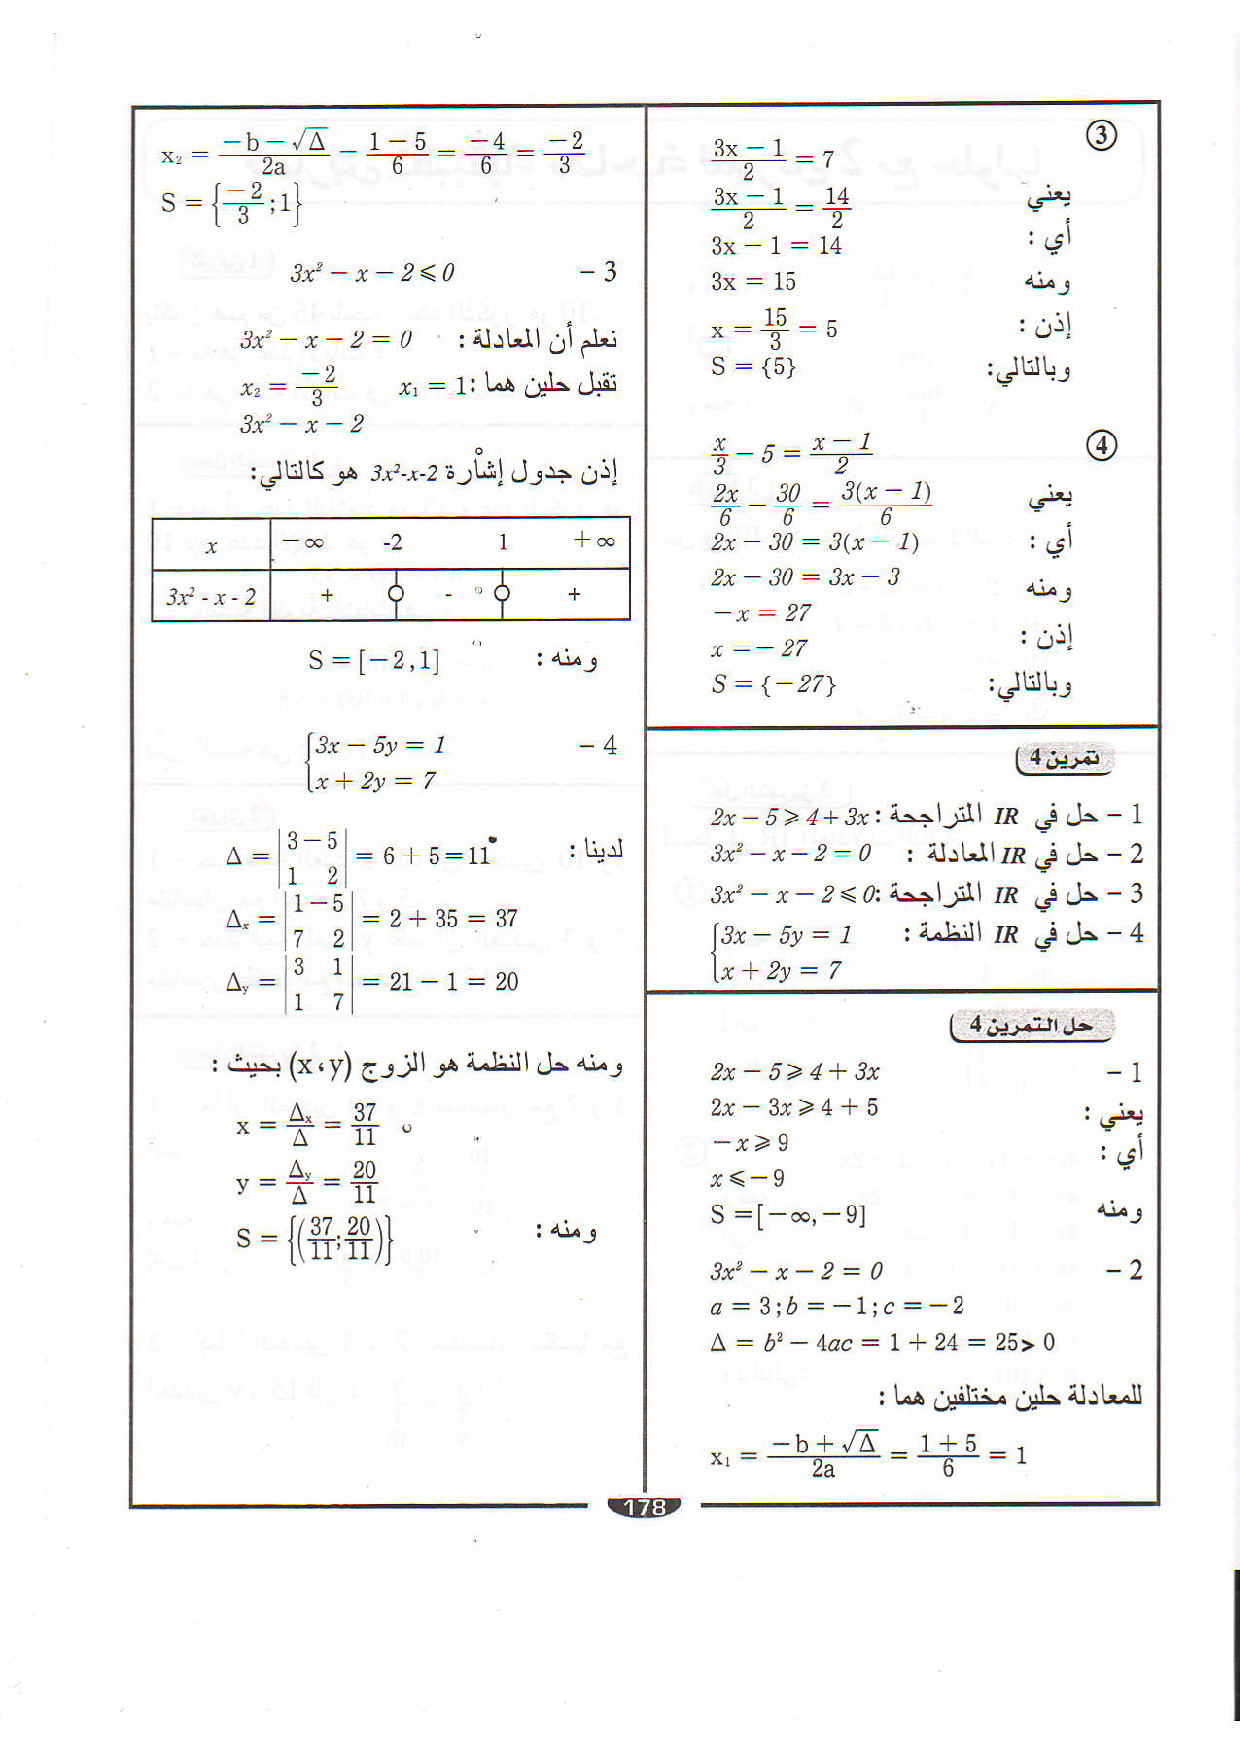 ③
3x − 1/2 = 7
يعني 3x − 1/2 = 14/2
أي : 3x − 1 = 14
ومنه 3x = 15
إذن : x = 15/3 = 5
وبالتالي: S = {5}
④
x/3 − 5 = x − 1/2
يعني 2x/6 − 30/6 = 3(x − 1)/6
أي : 2x − 30 = 3(x − 1)
ومنه 2x − 30 = 3x − 3
−x = 27
إذن : x −− 27
وبالتالي: S = {−27}
تمرين 4
1 – حل في IR المتراجحة : 2x − 5 ⩾ 4 + 3x
2 – حل في IR المعادلة : 3x² − x − 2 = 0
3 – حل في IR المتراجحة: 3x² − x − 2 ⩽ 0
4 – حل في IR النظمة : {3x − 5y = 1
x + 2y = 7
حل التمرين 4
1 – 2x − 5 ⩾ 4 + 3x
يعني : 2x − 3x ⩾ 4 + 5
أي : −x ⩾ 9
x ⩽ −9
ومنه S = [−∞, −9]
2 – 3x² − x − 2 = 0
a = 3 ; b = −1 ; c = −2
Δ = b² − 4ac = 1 + 24 = 25 > 0
للمعادلة حلين مختلفين هما :
x₁ = −b + √Δ/2a = 1 + 5/6 = 1
x₂ = −b − √Δ/2a − 1 − 5/6 = −4/6 = −2/3
S = {−2/3 ; 1}
3 – 3x² − x − 2 ⩽ 0
نعلم أن المعادلة : 3x² − x − 2 = 0
تقبل حلين هما : x₁ = 1 x₂ = −2/3
3x² − x − 2
إذن جدول إشارة 3x²-x-2 هو كالتالي:
x −∞ -2 1 +∞
3x² - x - 2 + - +
ومنه : S = [−2 , 1]
4 – {3x − 5y = 1
x + 2y = 7
لدينا : Δ = |3 −5 1 2| = 6 + 5 = 11
Δx = |1 −5 7 2| = 2 + 35 = 37
Δy = |3 1 1 7| = 21 − 1 = 20
ومنه حل النظمة هو الزوج (x ، y) بحيث :
x = Δx/Δ = 37/11
y = Δy/Δ = 20/11
ومنه : S = {(37/11 ; 20/11)}
178